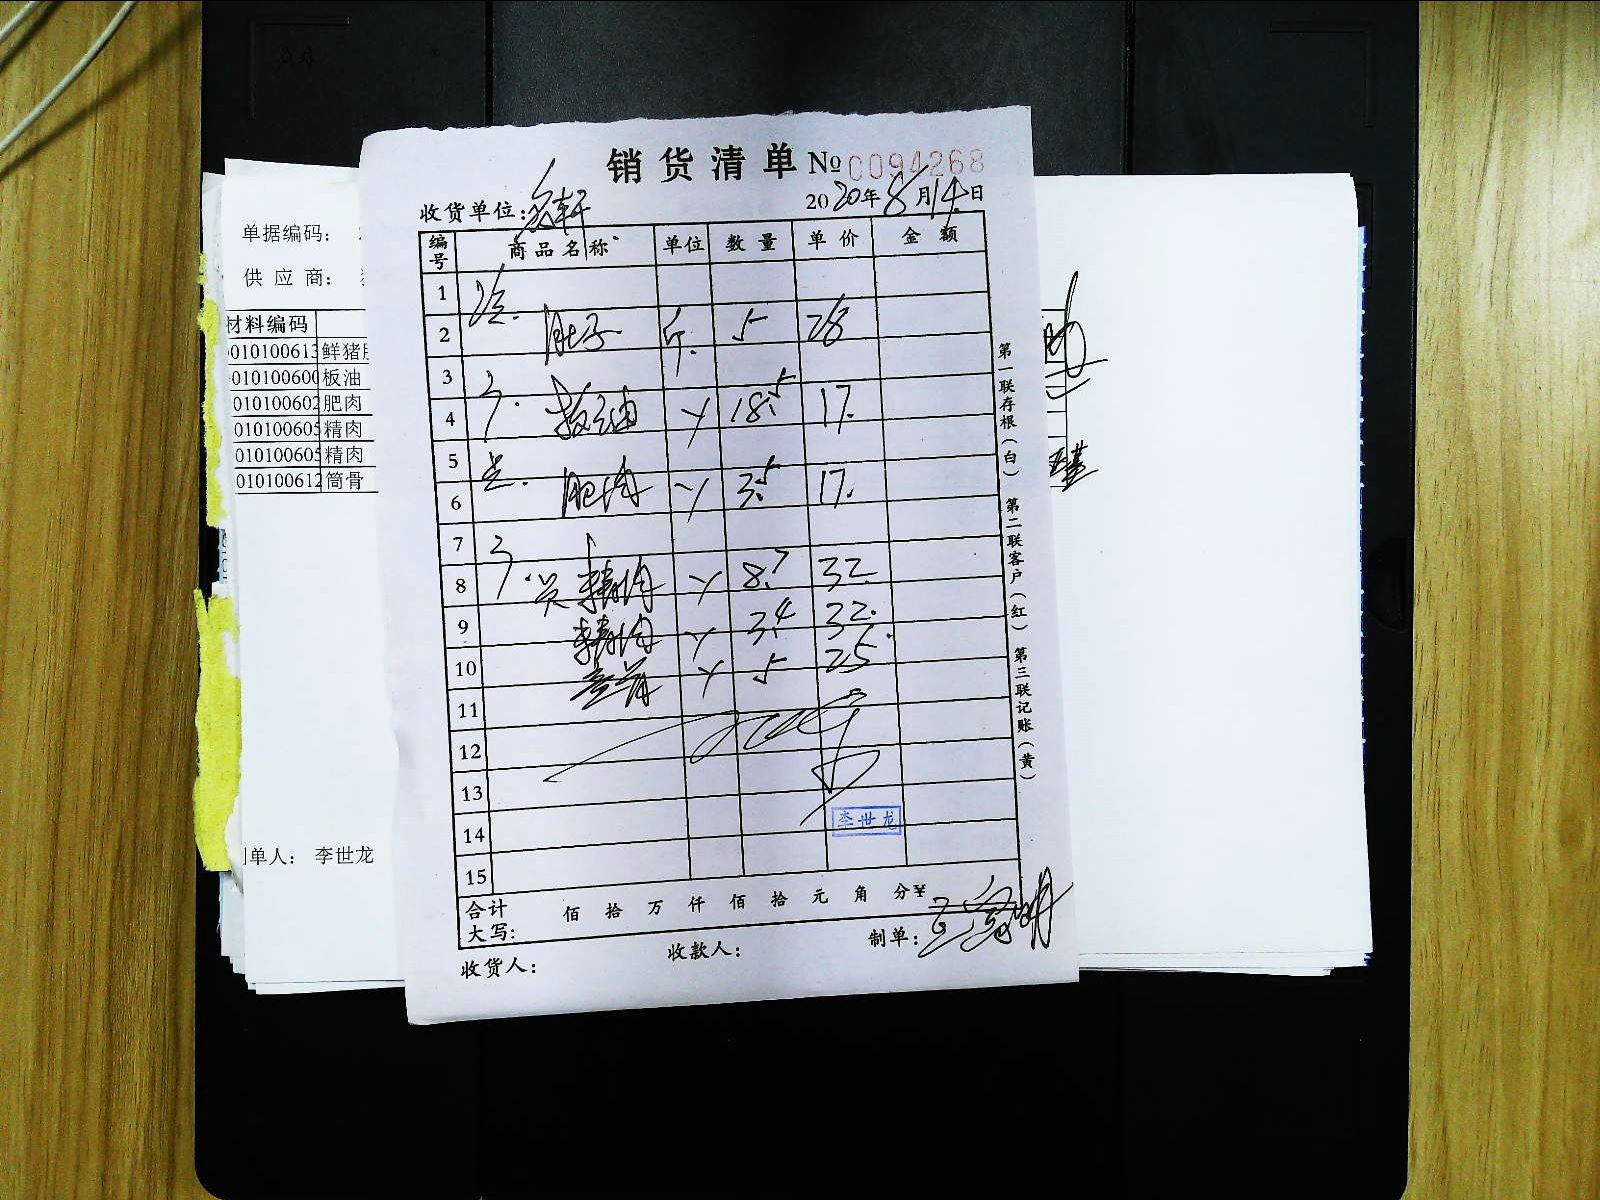 销货清单 №0094268
收货单位: 2020年8月14日
编号 商品名称 单位 数量 单价 金额
1
2 肚子 斤 5 28
3
4 板油 18.5 17.
5
6 肥肉 3.5 17.
7
8 精肉 8.7 32.
9 精肉 3.4 32.
10 筒骨 5 25.
11
12
13
14 李世龙
15
合计大写: 佰 拾 万 仟 佰 拾 元 角 分 ¥
收货人: 收款人: 制单:
第一联存根(白) 第二联客户(红) 第三联记账(黄)
单据编码:
供应商:
材料编码
010100613 鲜猪
010100600 板油
010100602 肥肉
010100605 精肉
010100605 精肉
010100612 筒骨
单人: 李世龙